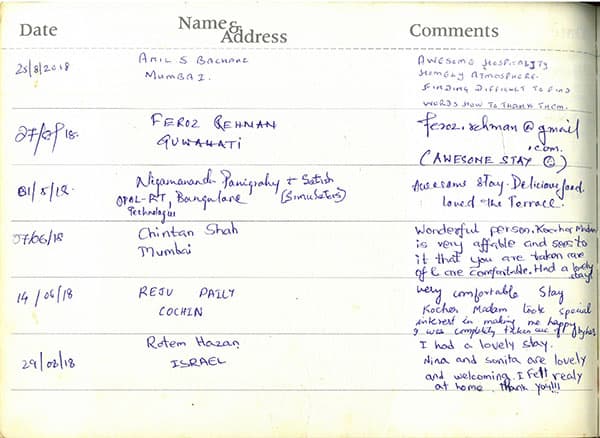 Date
Name & Address
Comments
25/8/2018
ANIL S BACHANI
MUMBAI.
AWESOME HOSPITALITY
HOMELY ATMOSPHERE.
FINDING DIFFICULT TO FIND
WORDS HOW TO THANK THEM.
FEROZ REHMAN
GUWAHATI
feroz.rehman@gmail
.com.
(AWESOME STAY ☺)
01/5/18
Nigamananda Panigrahy + Satish
OPAL-RT, Bangalore (Simulators)
Technologies
Awesome Stay. Delicious food.
loved the Terrace.
07/06/18
Chintan Shah
Mumbai
Wonderful person. Kochar Madam
is very affable and sees to
it that you are taken care
of & are comfortable. Had a lovely
stay
14/06/18
REJU PAILY
COCHIN
very comfortable Stay
Kocher Madam took special
interest in making me happy
I was completely taken care of by her
29/08/18
Rotem Hazan
ISRAEL
I had a lovely stay.
Nina and sunita are lovely
and welcoming. I fell realy
at home. Thank you!!!